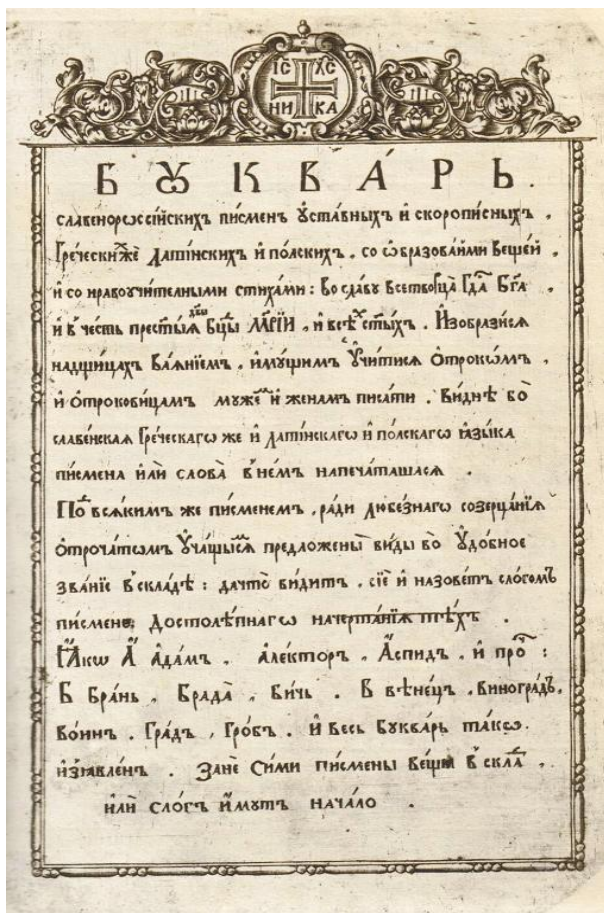 ІС ХС
НИ КА
БꙊКВА́РЬ.
славенорѡссі́йскихъ пи́смен ᲂу҆ста́вныхъ и҆ скоропи́сныхъ,
Гре́ческихже латі́нских и҆ по́лских, со ѡ҆бразова́нми веще́й,
и҆ со нравоучи́телными стиха́ми: Во сла́ву всетво́рца Гдⷭ҇а Бг҃а
и҆ въ че́сть престы́ѧ дв҃ы Бцⷣы Мр҃і́и, и҆ всѣ́хъ ст҃ы́хъ. И҆зобрази́сѧ
на дщи́цахъ ваѧ́нїемъ, и҆мꙋ́щимъ ᲂу҆чи́тисѧ ѻ҆́трокѡмъ,
и҆ ѻ҆трокови́цамъ мꙋже́мъ и҆ жена́мъ писа́ти. Ви́днѣ бо
славе́нскаѧ Гре́ческагѡ же и҆ латі́нскагѡ и҆ по́лскагѡ ꙗ҆зы́ка
пи́смена и҆лѝ слова̀ в не́мъ напеча́ташасѧ.
По всѧ́кимъ же пи́сменемъ, ра́ди любе́знагѡ созерца́нїѧ
ѻ҆троча́тѡмъ ᲂу҆ча́щымсѧ предложе́ны ви́ды во ᲂу҆до́бное
зва́нїе в скла́дѣ: да что̀ ви́дитъ, сїѐ и҆ назове́тъ сло́гомъ
пи́смене, досто лѣ́пнагѡ начерта́нїѧ тѣ́хъ.
Ꙗ҆́кѡ А҆ А҆да́мъ, А҆ле́кторъ, А҆́спидъ, и҆ про́ч:
Б Бра́нь, Брада̀, Би́чь. В вѣне́цъ, виногра́дъ,
во́инъ. Гра́дъ, Гро́бъ. И҆ весь Бꙋква́рь та́кѡ.
и҆з̾ѧвле́нъ. Зане́ си́ми пи́смены ве́щи в скла́дъ,
и҆лѝ сло́гъ и҆́мꙋтъ нача́ло.